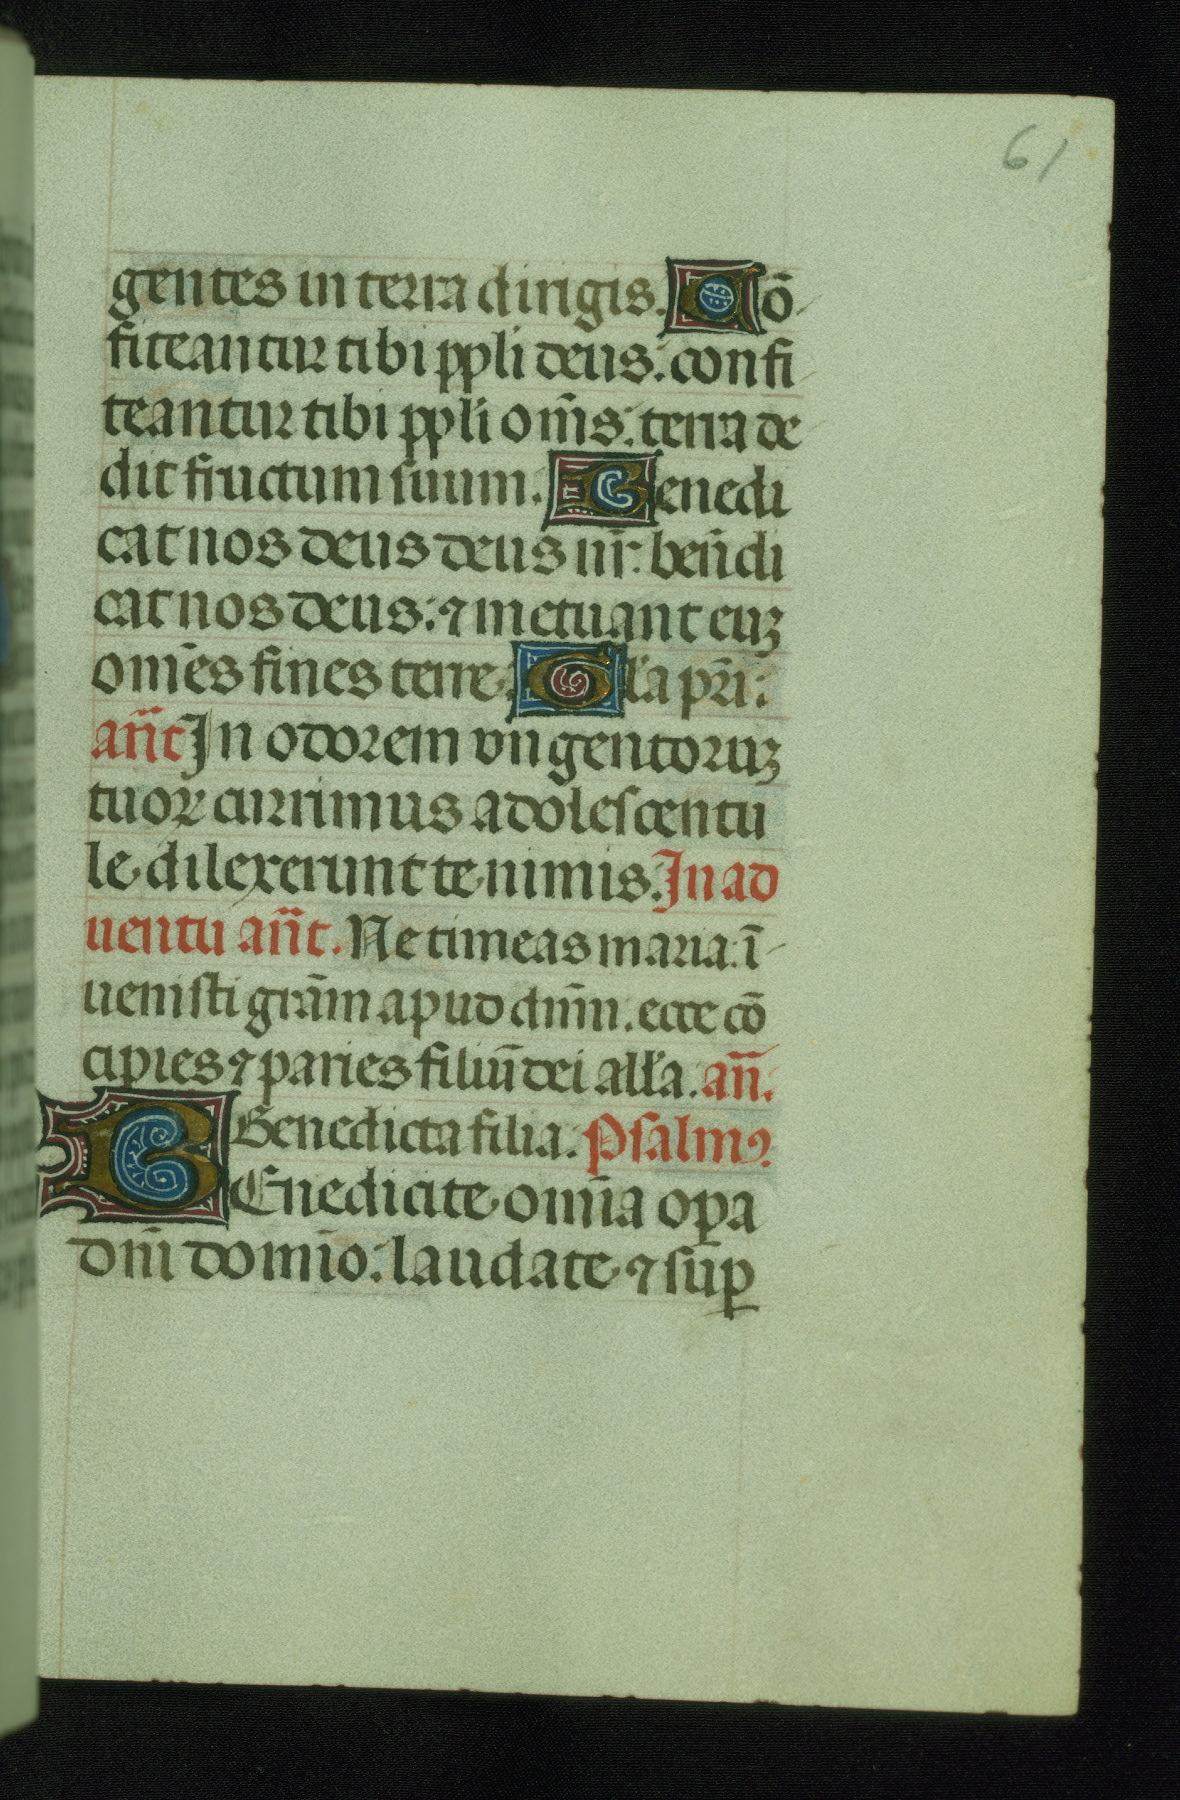 61
gentes in terra dirigis. Cō
fiteantur tibi ppli deus: confi
teantur tibi ppli om̄s: terra de
dit fructum suum. Benedi
cat nos deus deus nr̄: ben̄di
cat nos deus: ⁊ metuant euꝫ
omēs fines terre. Gl'a pr̄i:
an̄t In odorem vngentoruꝫ
tuoꝝ currimus adolescentu
le dilexerunt te nimis. In ad
uentu an̄t. Ne timeas maria. ī
uenisti grām apud dn̄m. ecce cō
cipies ⁊ paries filiū dei all'a. an̄.
Benedicta filia. Psalmꝰ.
BEnedicite omīa oꝑa
dn̄i domīo: laudate ⁊ suꝑ